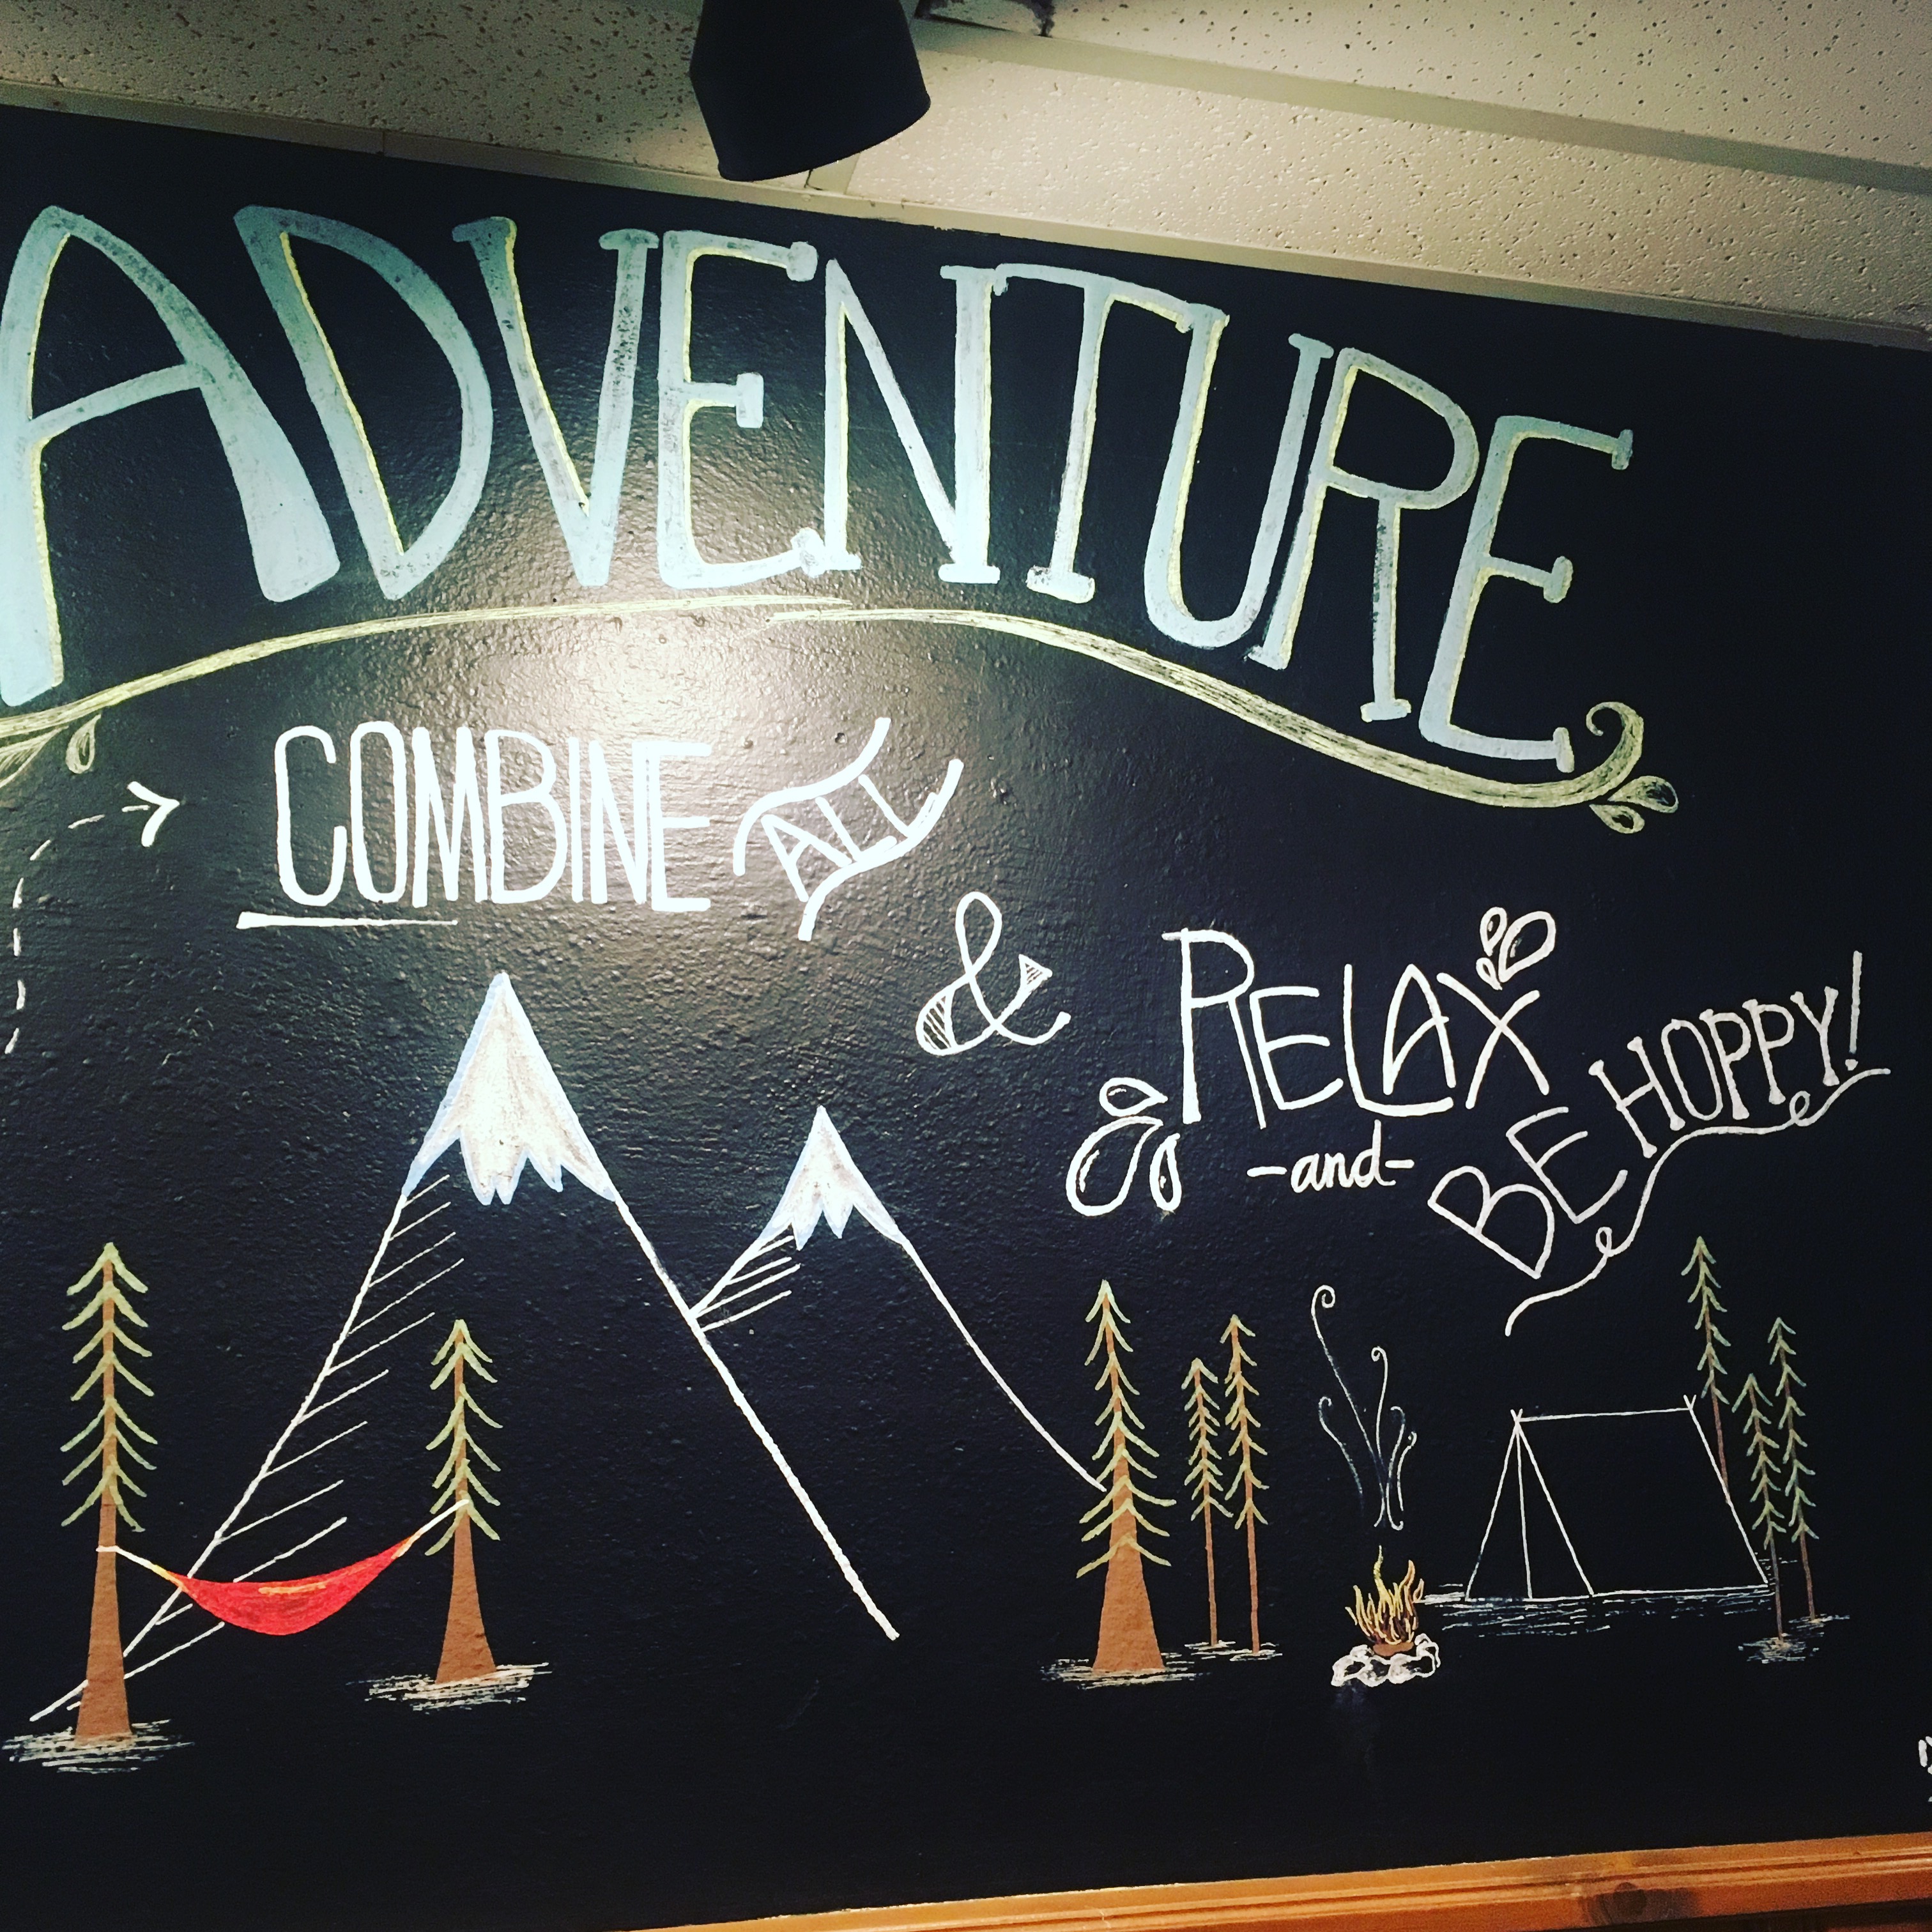 ADVENTURE
COMBINE ALL
& RELAX
-and- BE HOPPY!